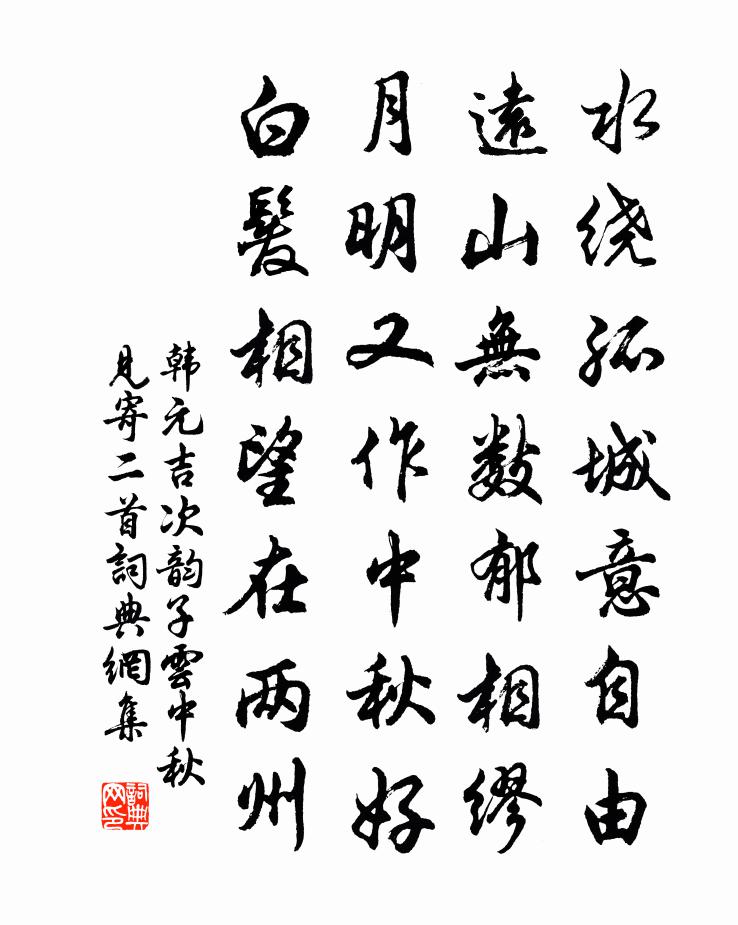 水绕孤城意自由
遠山無数郁相繆
月明又作中秋好
白髮相望在两州
韩元吉次韵子雲中秋
見寄二首詞典網集
詞典网印